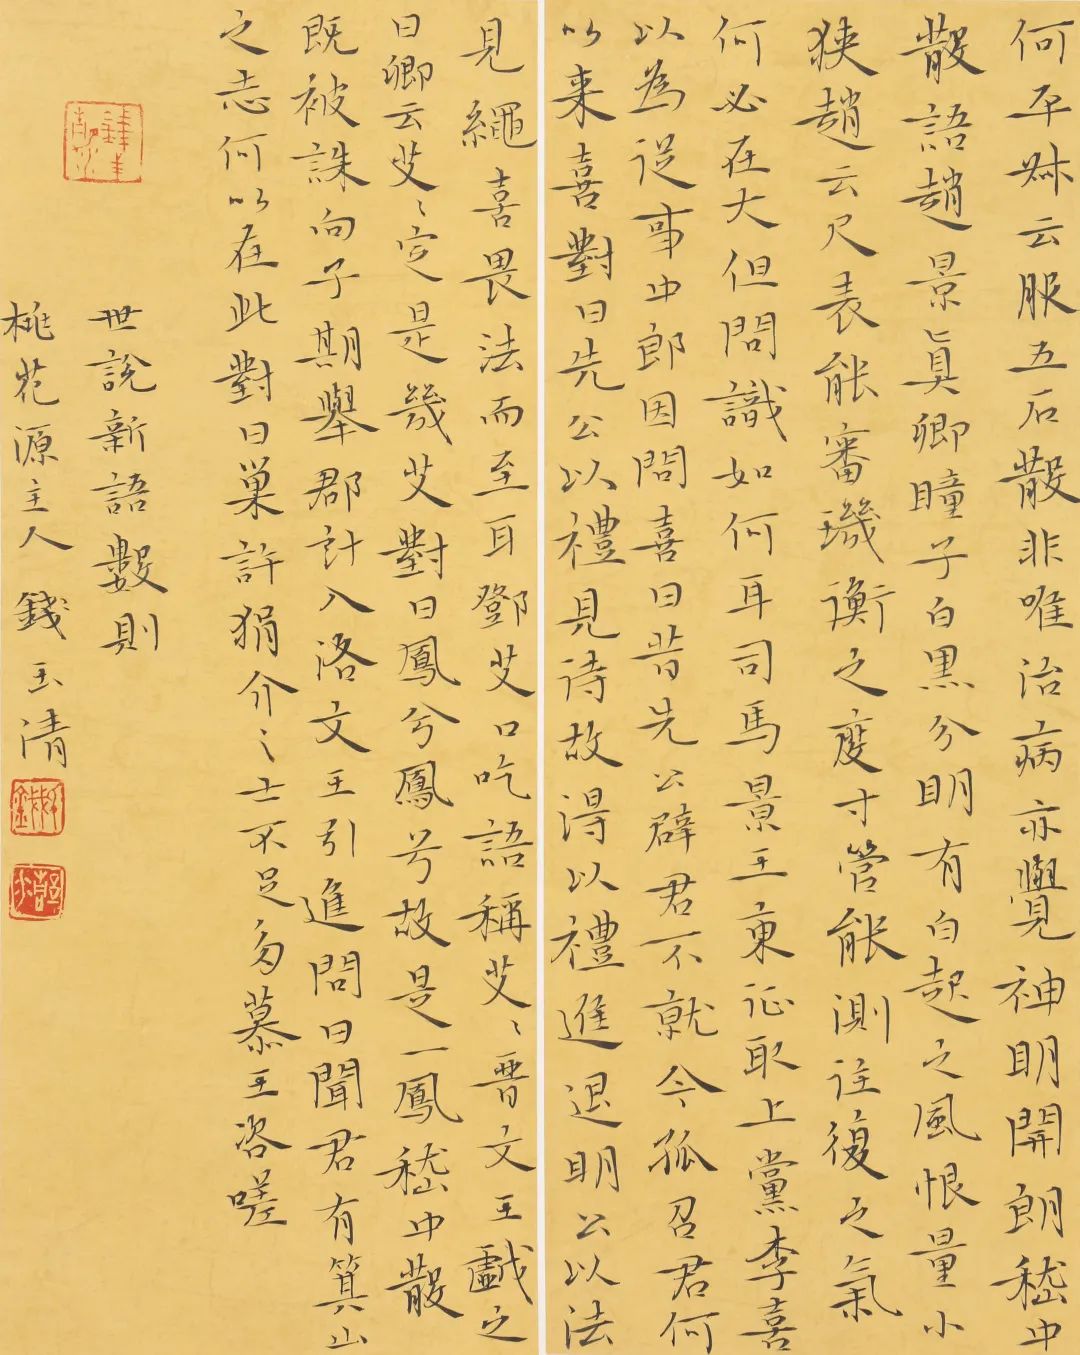 何平叔云服五石散非唯治病亦覺神明開朗嵇中
散語趙景真卿瞳子白黑分明有白起之風恨量小
狹趙云尺表能審璣衡之度寸管能測往復之氣
何必在大但問識如何耳司馬景王東征取上黨李喜
以為從事中郎因問喜曰昔先公辟君不就今孤召君何
以来喜對曰先公以禮見待故得以禮進退明公以法
見繩喜畏法而至耳鄧艾口吃語稱艾〻晉文王戲之
曰卿云艾〻定是幾艾對曰鳳兮鳳兮故是一鳳嵇中散
既被誅向子期舉郡計入洛文王引進問曰聞君有箕山
之志何以在此對曰巢許狷介之士不足多慕王咨嗟
世說新語數則
桃花源主人錢玉清